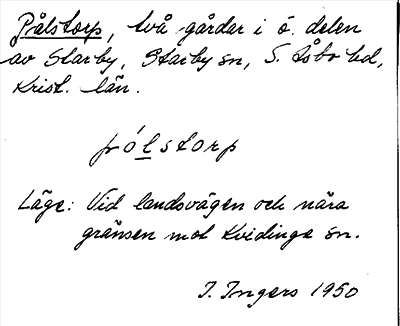 Pålstorp, två gårdar i ö. delen
av Starby, Starby sn, S. Åsbo hd,
Krist. län.
pó̱lstorp
Läge: Vid landsvägen och nära
gränsen mot Kvidinge sn.
I. Ingers 1950